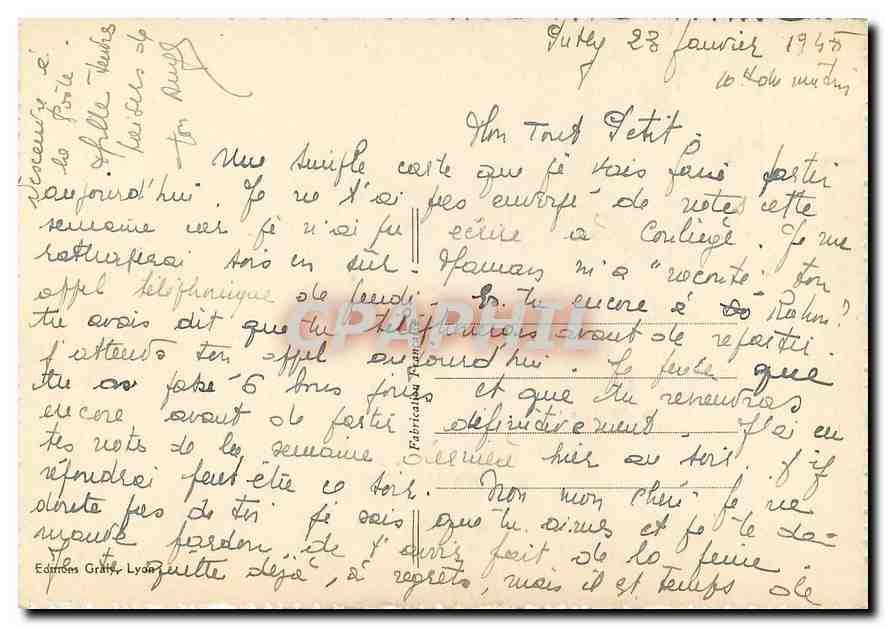 23 Janvier 1945
10 h du matin
Mon Tout Petit.
Une simple carte que je vais faire partir
aujourd'hui. Je ne t'ai pas envoyé de notes cette
semaine car je n'ai pu écrire à Conliège. Je me
rattraperai sois en sûr. Maman m'a "raconté" ton
appel téléphonique de lundi. Es tu encore à
tu avais dit que tu téléphonerais avant de repartir.
J'attends ton appel aujourd'hui. Je pense que
tu as passé 6 bons jours et que tu reviendras
encore avant de partir définitivement. J'ai eu
tes notes de la semaine dernière hier au soir. J'y
répondrai peut être ce soir. Non mon chéri je ne
doute pas de toi je sais que tu aimes et je te de-
mande pardon de t'avoir fait de la peine.
Je te quitte "déjà", à regrets, mais il est temps de
descendre à
la poste.
Mille tendres
baisers de
ton
Fabrication Française
Editions Graly, Lyon
CPAPHIL